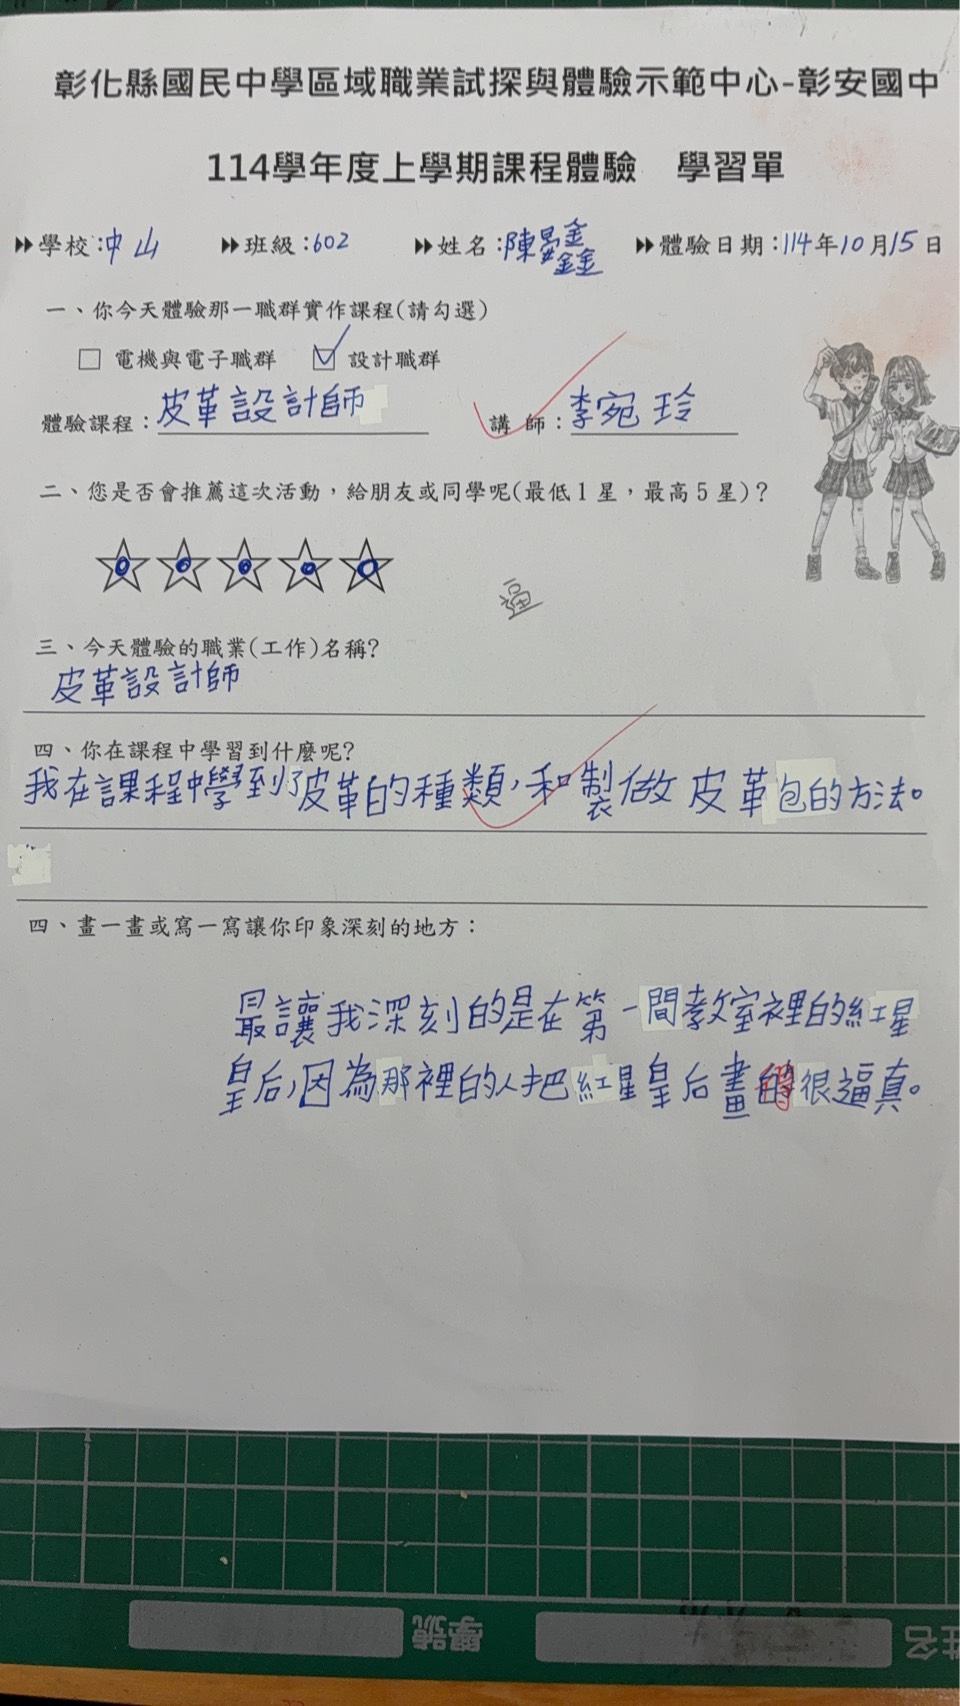 彰化縣國民中學區域職業試探與體驗示範中心-彰安國中
114學年度上學期課程體驗 學習單
學校:中山 班級:602 姓名:陳晏鑫 體驗日期:114年10月15日
一、你今天體驗那一職群實作課程(請勾選)
□ 電機與電子職群 ☑ 設計職群
體驗課程:皮革設計師 講 師:李宛玲
二、您是否會推薦這次活動,給朋友或同學呢(最低1星,最高5星)?
逼
三、今天體驗的職業(工作)名稱?
皮革設計師
四、你在課程中學習到什麼呢?
我在課程中學到了皮革的種類,和製做皮革包的方法。
四、畫一畫或寫一寫讓你印象深刻的地方:
最讓我深刻的是在第一間教室裡的紅星
皇后,因為那裡的人把紅星皇后畫得很逼真。
學號
姓名